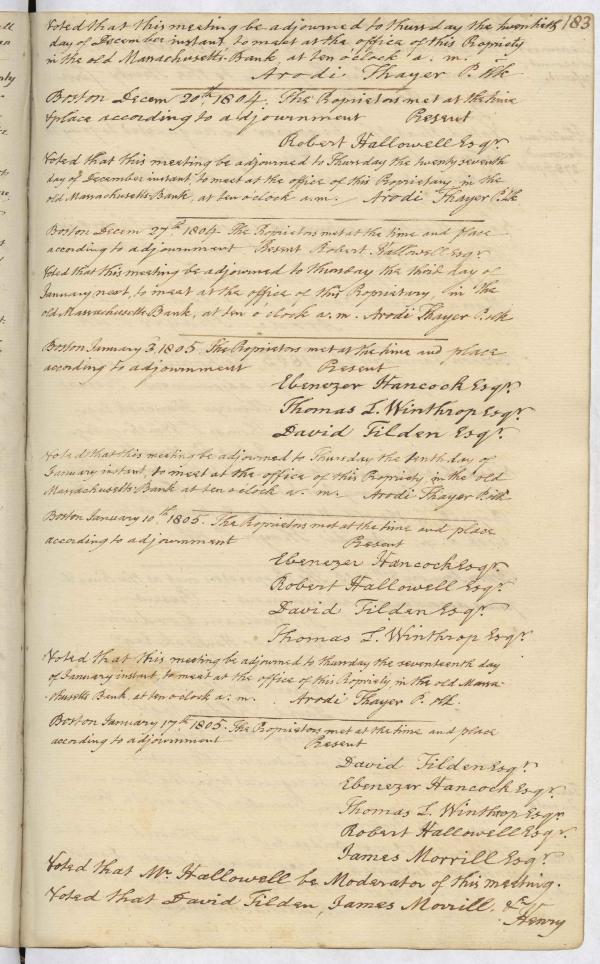 183
Voted that this meeting be adjourned to thursday the twentieth
day of December instant, to meet at the office of this Propriety
in the old Massachusetts Bank, at ten o'clock a. m.
Arodi Thayer P. Clk
Boston Decem 20th 1804. The Proprietors met at the time
& place according to adjournment Present
Robert Hallowell Esqr.
Voted that this meeting be adjourned to Thursday the twenty seventh
day of December instant, to meet at the office of this Proprietary, in the
old Massachusetts Bank, at ten o'clock a.m. Arodi Thayer P. Clk
Boston Decem 27th 1804. The Proprietors met at the time and place
according to adjournment Present Robert Hallowell Esqr.
Voted that this meeting be adjourned to thursday the third day of
January next, to meet at the office of this Proprietary, in the
old Massachusetts Bank, at ten o'clock a.m. Arodi Thayer P. Clk
Boston January 3, 1805. The Proprietors met at the time and place
according to adjournment Present
Ebenezer Hancock Esqr.
Thomas L. Winthrop Esqr.
David Tilden Esqr.
Voted that this meeting be adjourned to Thursday the tenth day of
January instant, to meet at the office of this Propriety, in the old
Massachusetts Bank at ten o'clock a. m. Arodi Thayer P. Clk
Boston January 10th 1805. The Proprietors met at the time and place
according to adjournment Present
Ebenezer Hancock Esqr.
Robert Hallowell Esqr.
David Tilden Esqr.
Thomas L. Winthrop Esqr.
Voted that this meeting be adjourned to thursday the seventeenth day
of January instant, to meet at the office of this Propriety, in the old Massa-
-chusetts Bank, at ten o'clock a. m. Arodi Thayer P. Clk.
Boston January 17th 1805. The Proprietors met at the time and place
according to adjournment Present
David Tilden Esqr.
Ebenezer Hancock Esqr.
Thomas L. Winthrop Esqr.
Robert Hallowell Esqr.
James Morrill Esqr.
Voted that Mr. Hallowell be Moderator of this meeting.
Voted that David Tilden, James Morrill, &
Henry